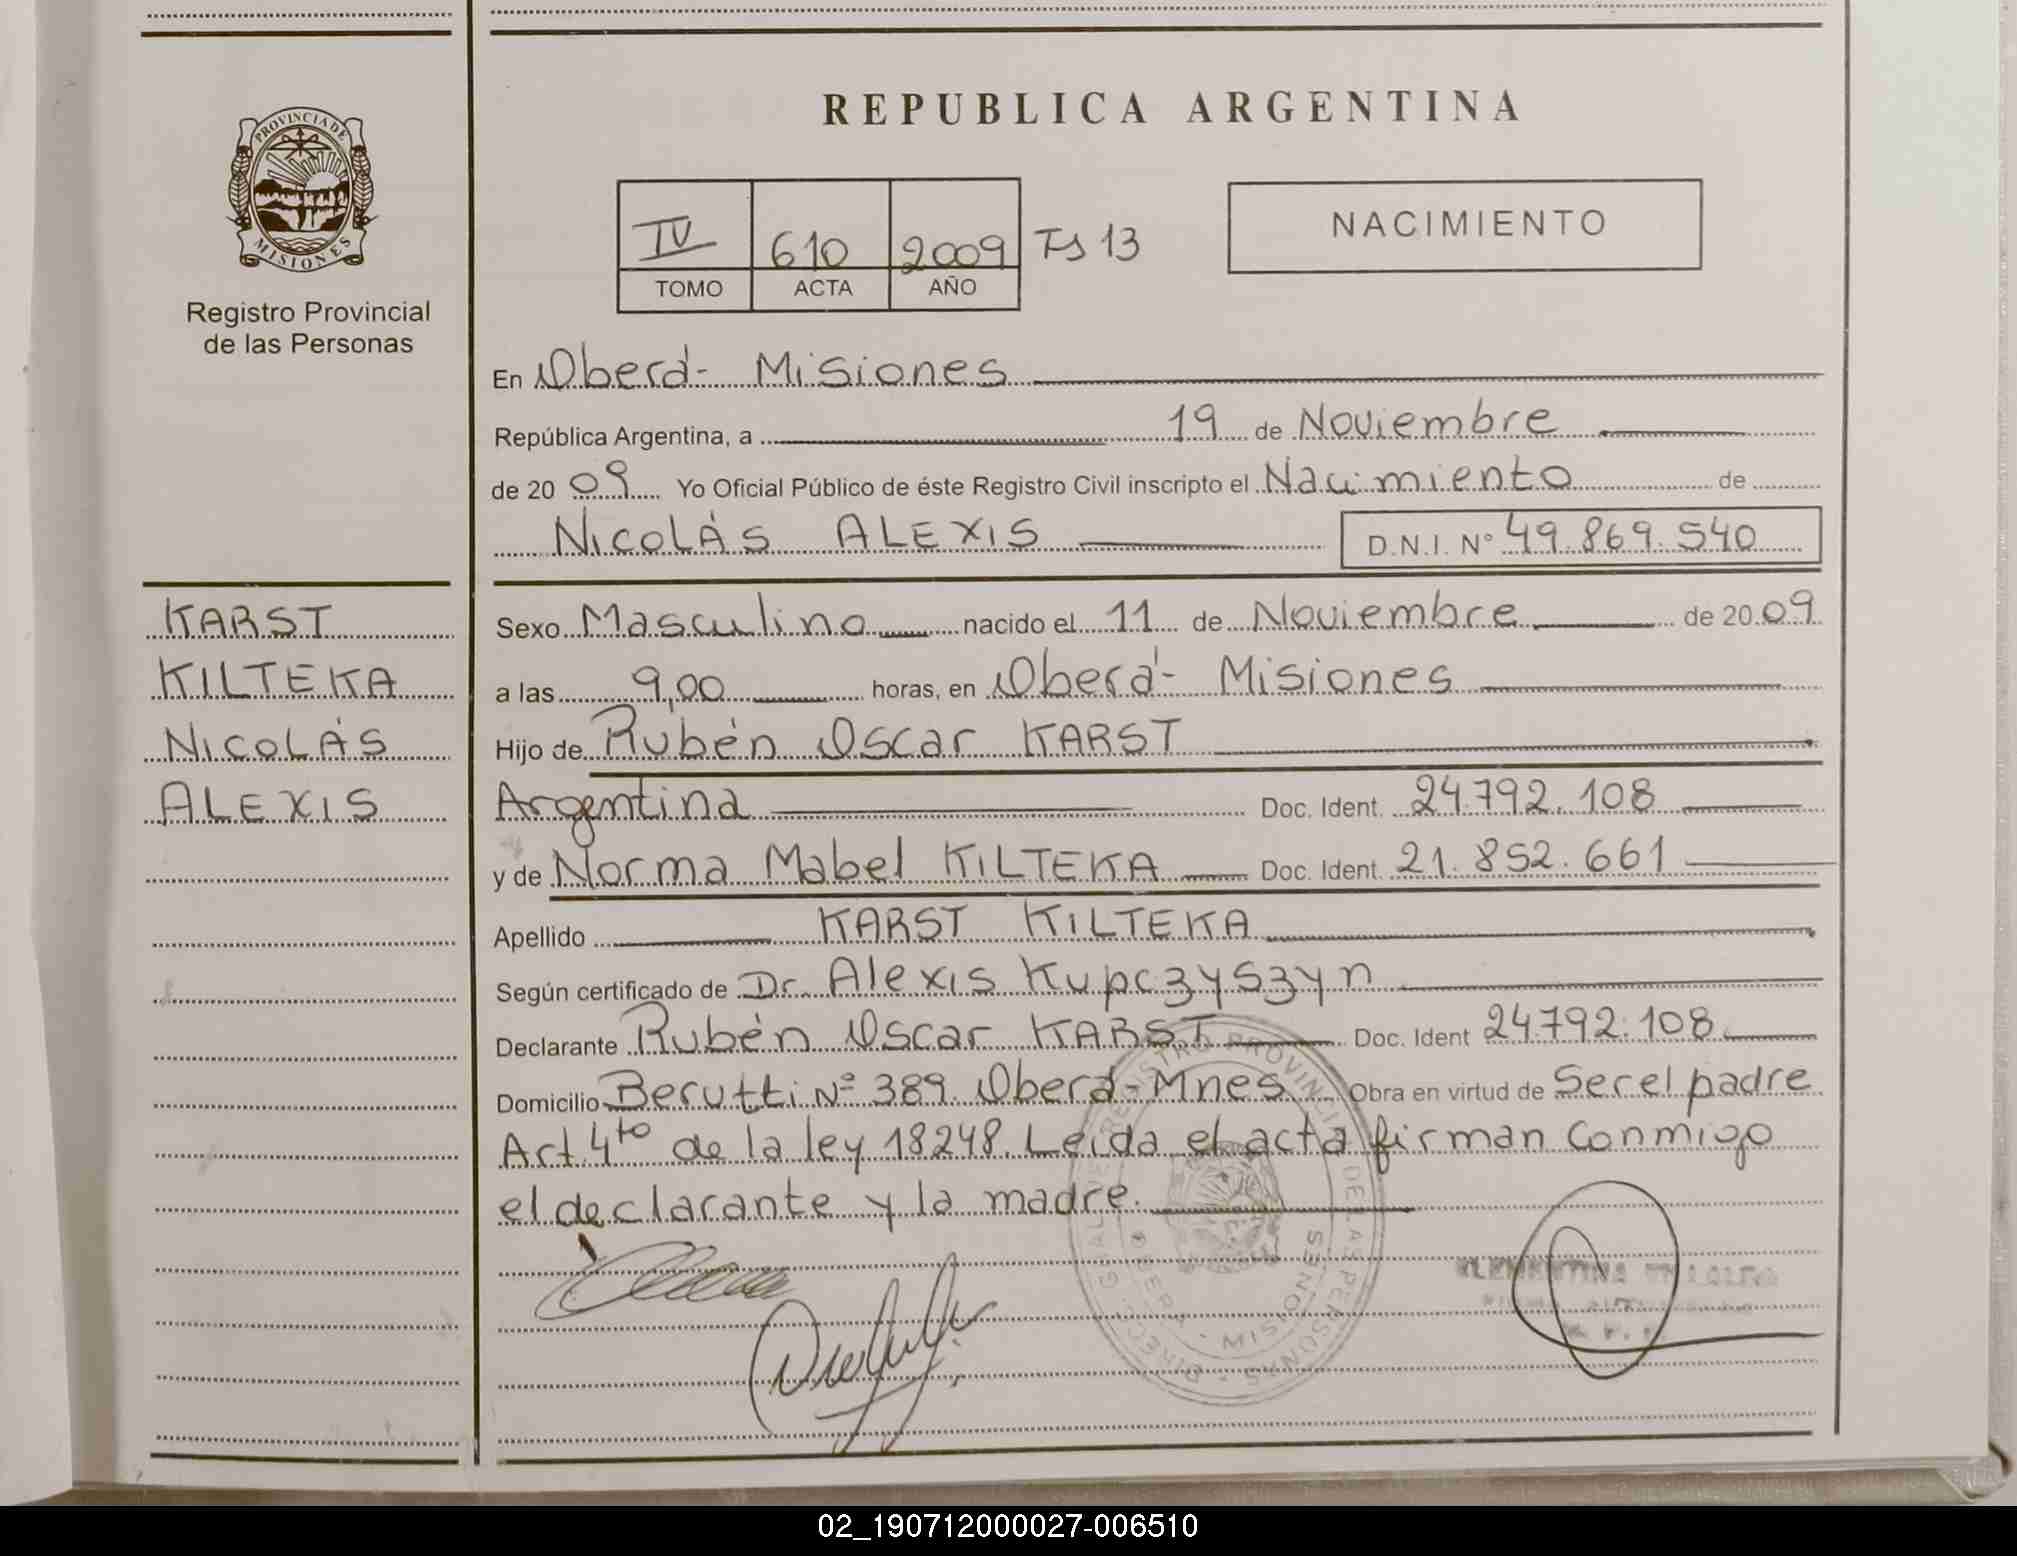 PROVINCIA DE
MISIONES
Registro Provincial
de las Personas
REPUBLICA ARGENTINA
IV 610 2009 Fs 13
TOMO ACTA AÑO
NACIMIENTO
En Oberá- Misiones
República Argentina, a 19 de Noviembre
de 20 09 Yo Oficial Público de éste Registro Civil inscripto el Nacimiento de
NICOLÁS ALEXIS D.N.I. Nº 49.869.540
KARST
KILTEKA
NICOLÁS
ALEXIS
Sexo Masculino nacido el 11 de Noviembre de 20 09
a las 9,00 horas, en Oberá- Misiones
Hijo de Rubén Oscar KARST
Argentina Doc. Ident. 24.792.108
y de Norma Mabel KILTEKA Doc. Ident. 21.852.661
Apellido KARST KILTEKA
Según certificado de Dr. Alexis Kupczyszyn
Declarante Rubén Oscar KARST Doc. Ident 24.792.108
Domicilio Berutti Nº 389. Oberá-Mnes Obra en virtud de Ser el padre
Art. 4to de la ley 18248. Leida el acta firman conmigo
el declarante y la madre.
REGISTRO PROVINCIAL DE LAS PERSONAS
OBERA - MISIONES
CLEMENTINA
02_190712000027-006510